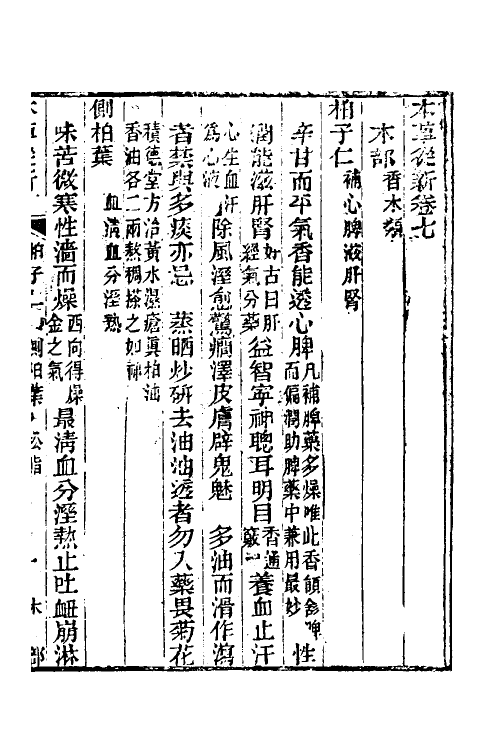 本草從新卷七
木部 香木類
柏子仁 補心脾液肝腎
辛甘而平氣香能透心脾 凡補脾藥多燥唯此香能舒脾而偏潤助脾藥中兼用最妙 性
潤能滋肝腎 好古曰肝經氣分藥 益智寧神聰耳明目 香通竅 養血止汗
心生血汗為心液 除風溼愈驚癇澤皮膚辟鬼魅 多油而滑作瀉
者禁與多痰亦忌 蒸晒炒研去油油透者勿入藥畏菊花
積德堂方治黃水濕瘡真柏油香油各二兩熬稠搽之如神
側柏葉 血清血分溼熱
味苦微寒性濇而燥 西向得燥金之氣 最清血分溼熱止吐衄崩淋
本草從新 柏子仁 側柏葉 松脂 一 木部